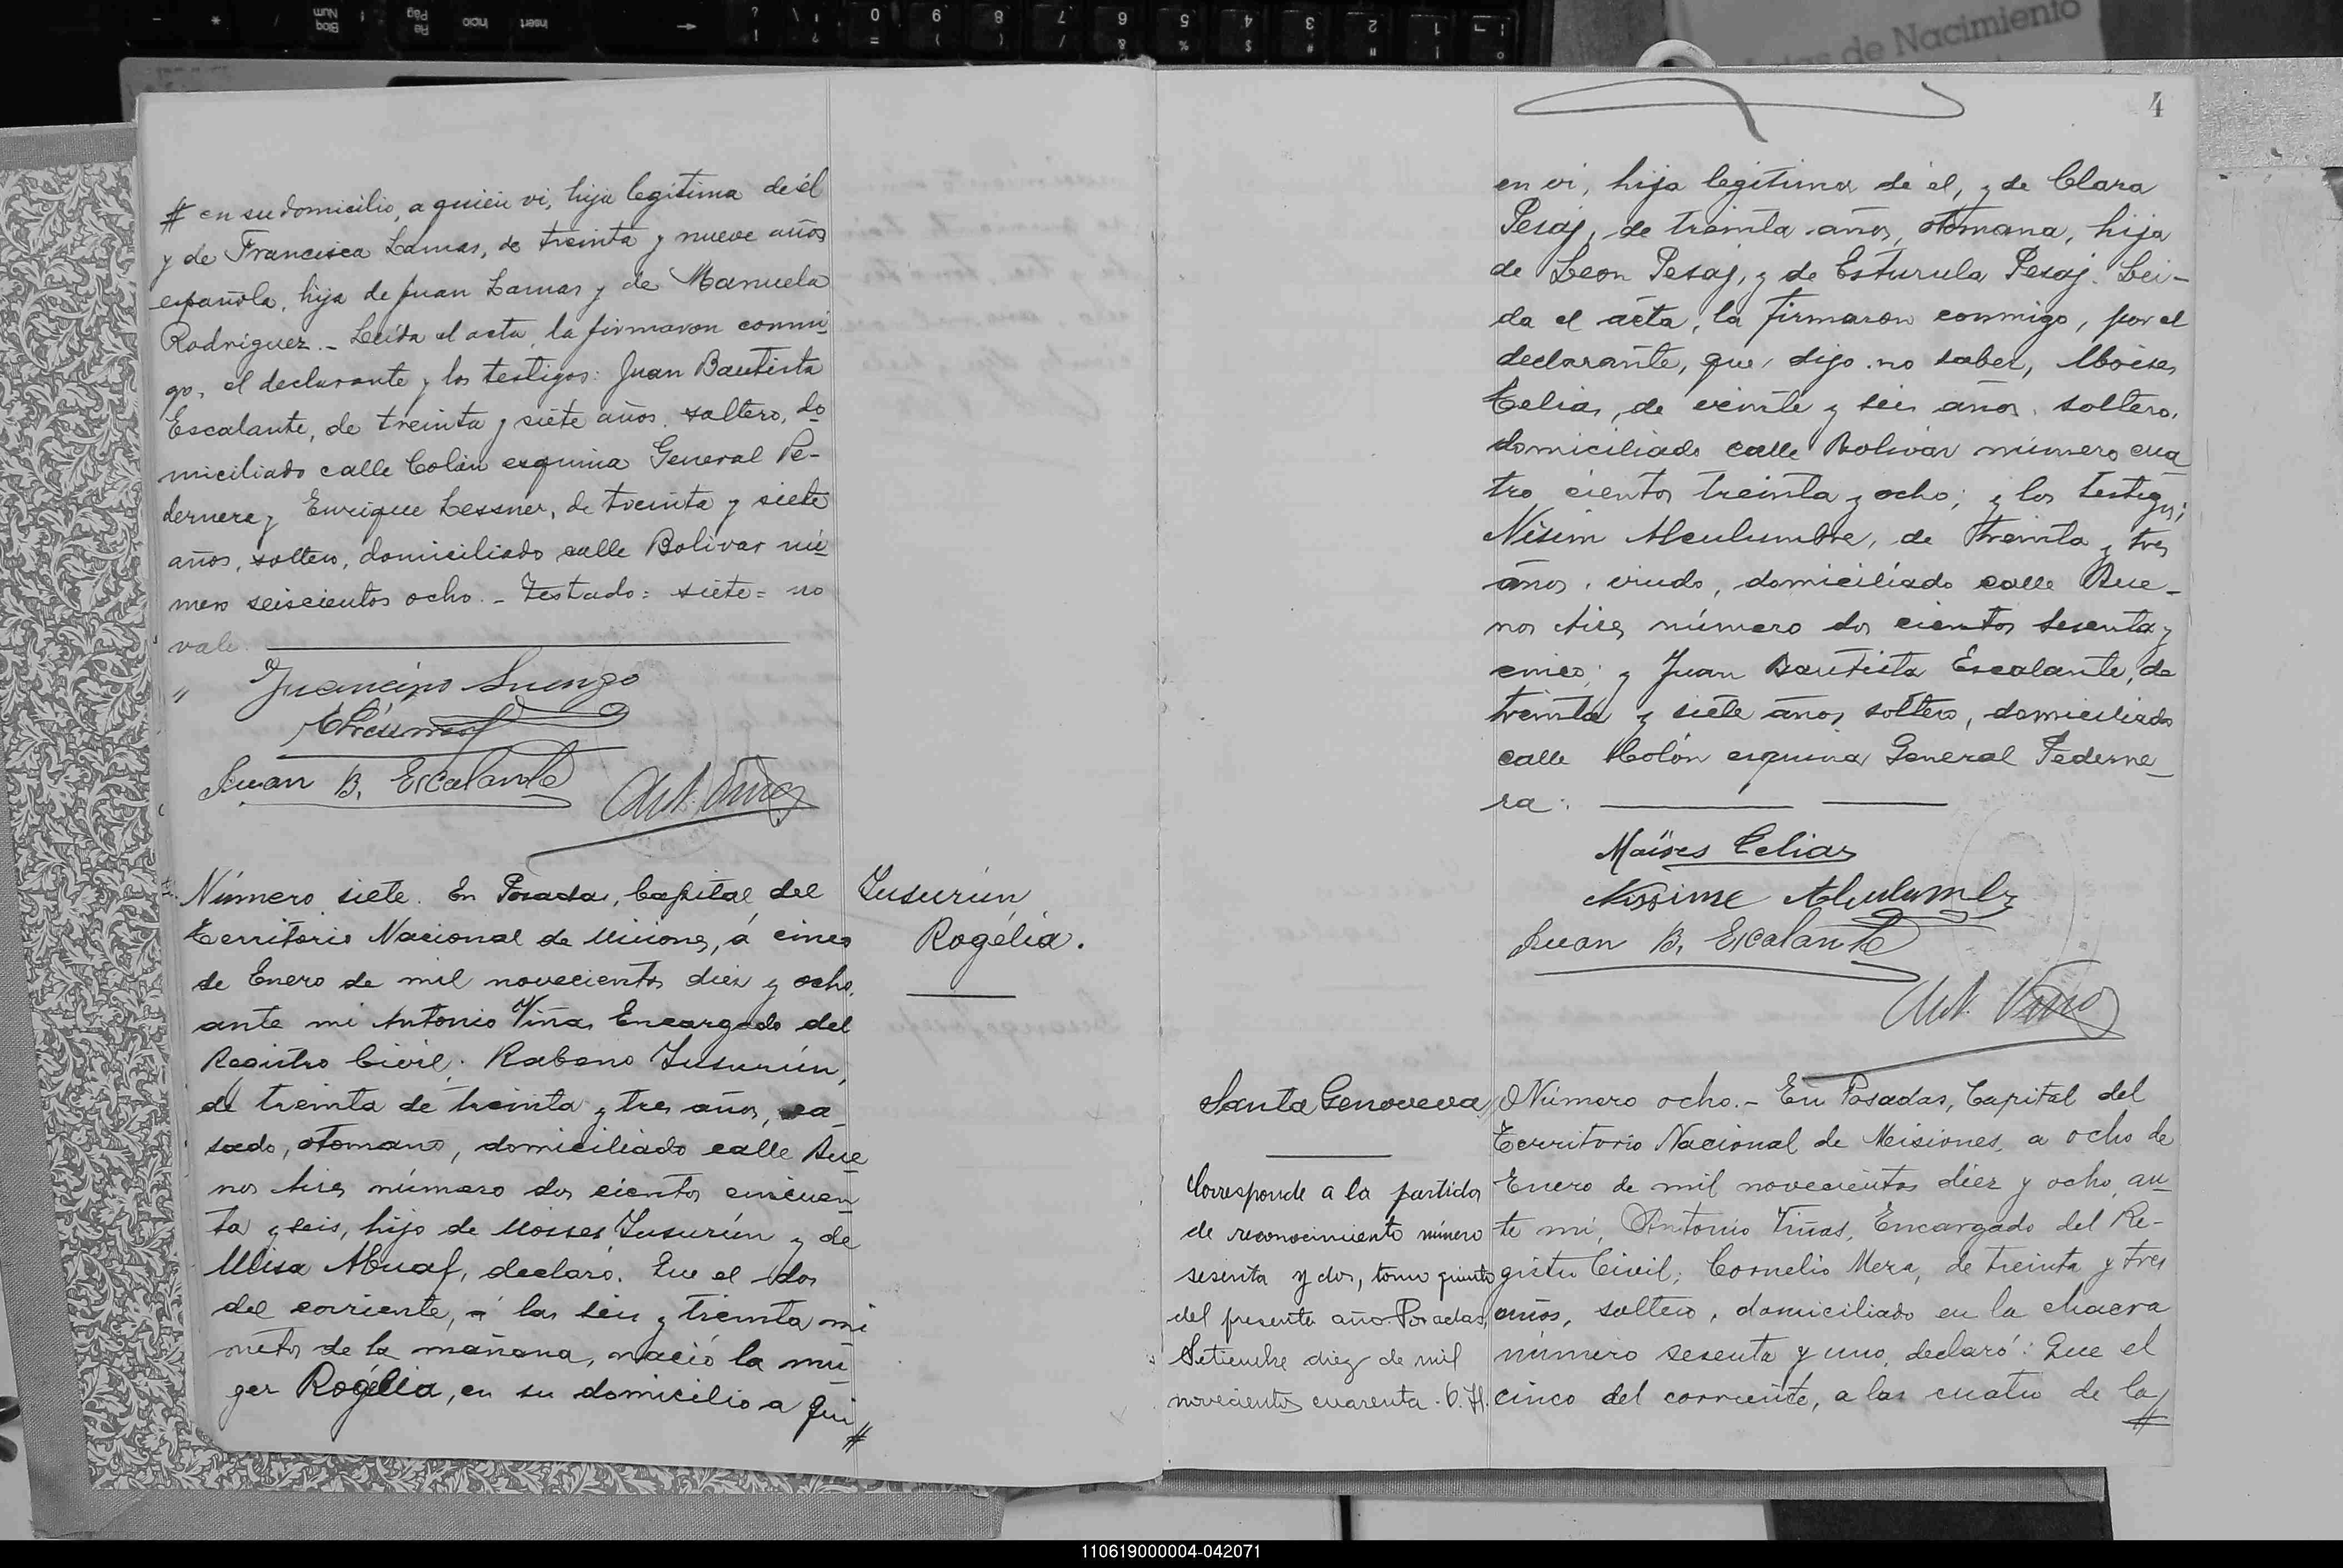 # en su domicilio, a quien vi, hija legitima de él
y de Francisca Lamas, de treinta y nueve años
española, hija de Juan Lamas y de Manuela
Rodriguez.- Leída el acta, la firmaron conmi-
go, el declarante y los testigos: Juan Bautista
Escalante, de treinta y siete años, soltero, do
miciliado calle Colón esquina General Pe-
dernera y Enrique Lessner, de treinta y siete
años, soltero, domiciliado calle Bolivar nú
mero seiscientos ocho.- Testado: siete= no
vale.
Juan B. Escalante
Ant. Viñas
Número siete. En Posadas, Capital del
Territorio Nacional de Misiones, á cinco
de Enero de mil novecientos diez y ocho,
ante mi Antonio Viñas Encargado del
Registro Civil. Rabeno Susurún,
de treinta de treinta y tres años, ca-
sado, otomano, domiciliado calle Bue
nos Aires número dos cientos cincuen
ta y seis, hijo de Moises Susurún y de
Abuaf, declaró. Que el dos
del corriente, á las seis y treinta mi
nutos de la mañana, nació la mu
ger Rogelia, en su domicilio a qui
#
Susurún
Rogelia.
4
en vi, hija legitima de él, y de Clara
Pesaj, de treinta años, otomana, hija
de Leon Pesaj, y de Esturula Pesaj. Lei-
da el acta, la firmaron conmigo, por el
declarante, que dijo no saber, Moises
Celias, de veinte y seis años, soltero,
domiciliado calle Bolivar número cua
tro cientos treinta y ocho; y los testigos;
Nisim Alculumbre, de treinta y tres
años, viudo, domiciliado calle Bue-
nos Aires número dos cientos sesenta y
cinco; y Juan Bautista Escalante, de
treinta y siete años soltero, domiciliado
calle Colón esquina General Pederne-
ra.
Moïses Celias
Nissime Alculumbre
Juan B. Escalante
Ant. Viñas
Santa Genoveva
Corresponde a la partida
de reconocimiento número
sesenta y dos, tomo quinto
del presente año. Posadas,
Setiembre diez de mil
novecientos cuarenta.
Número ocho.- En Posadas, Capital del
Territorio Nacional de Misiones, a ocho de
Enero de mil novecientos diez y ocho, an
te mi, Antonio Viñas, Encargado del Re-
gistro Civil; Cornelio Mera, de treinta y tres
años, soltero, domiciliado en la chacra
número sesenta y uno, declaró: Que el
cinco del corriente, a las cuatro de la
#
110619000004-042071